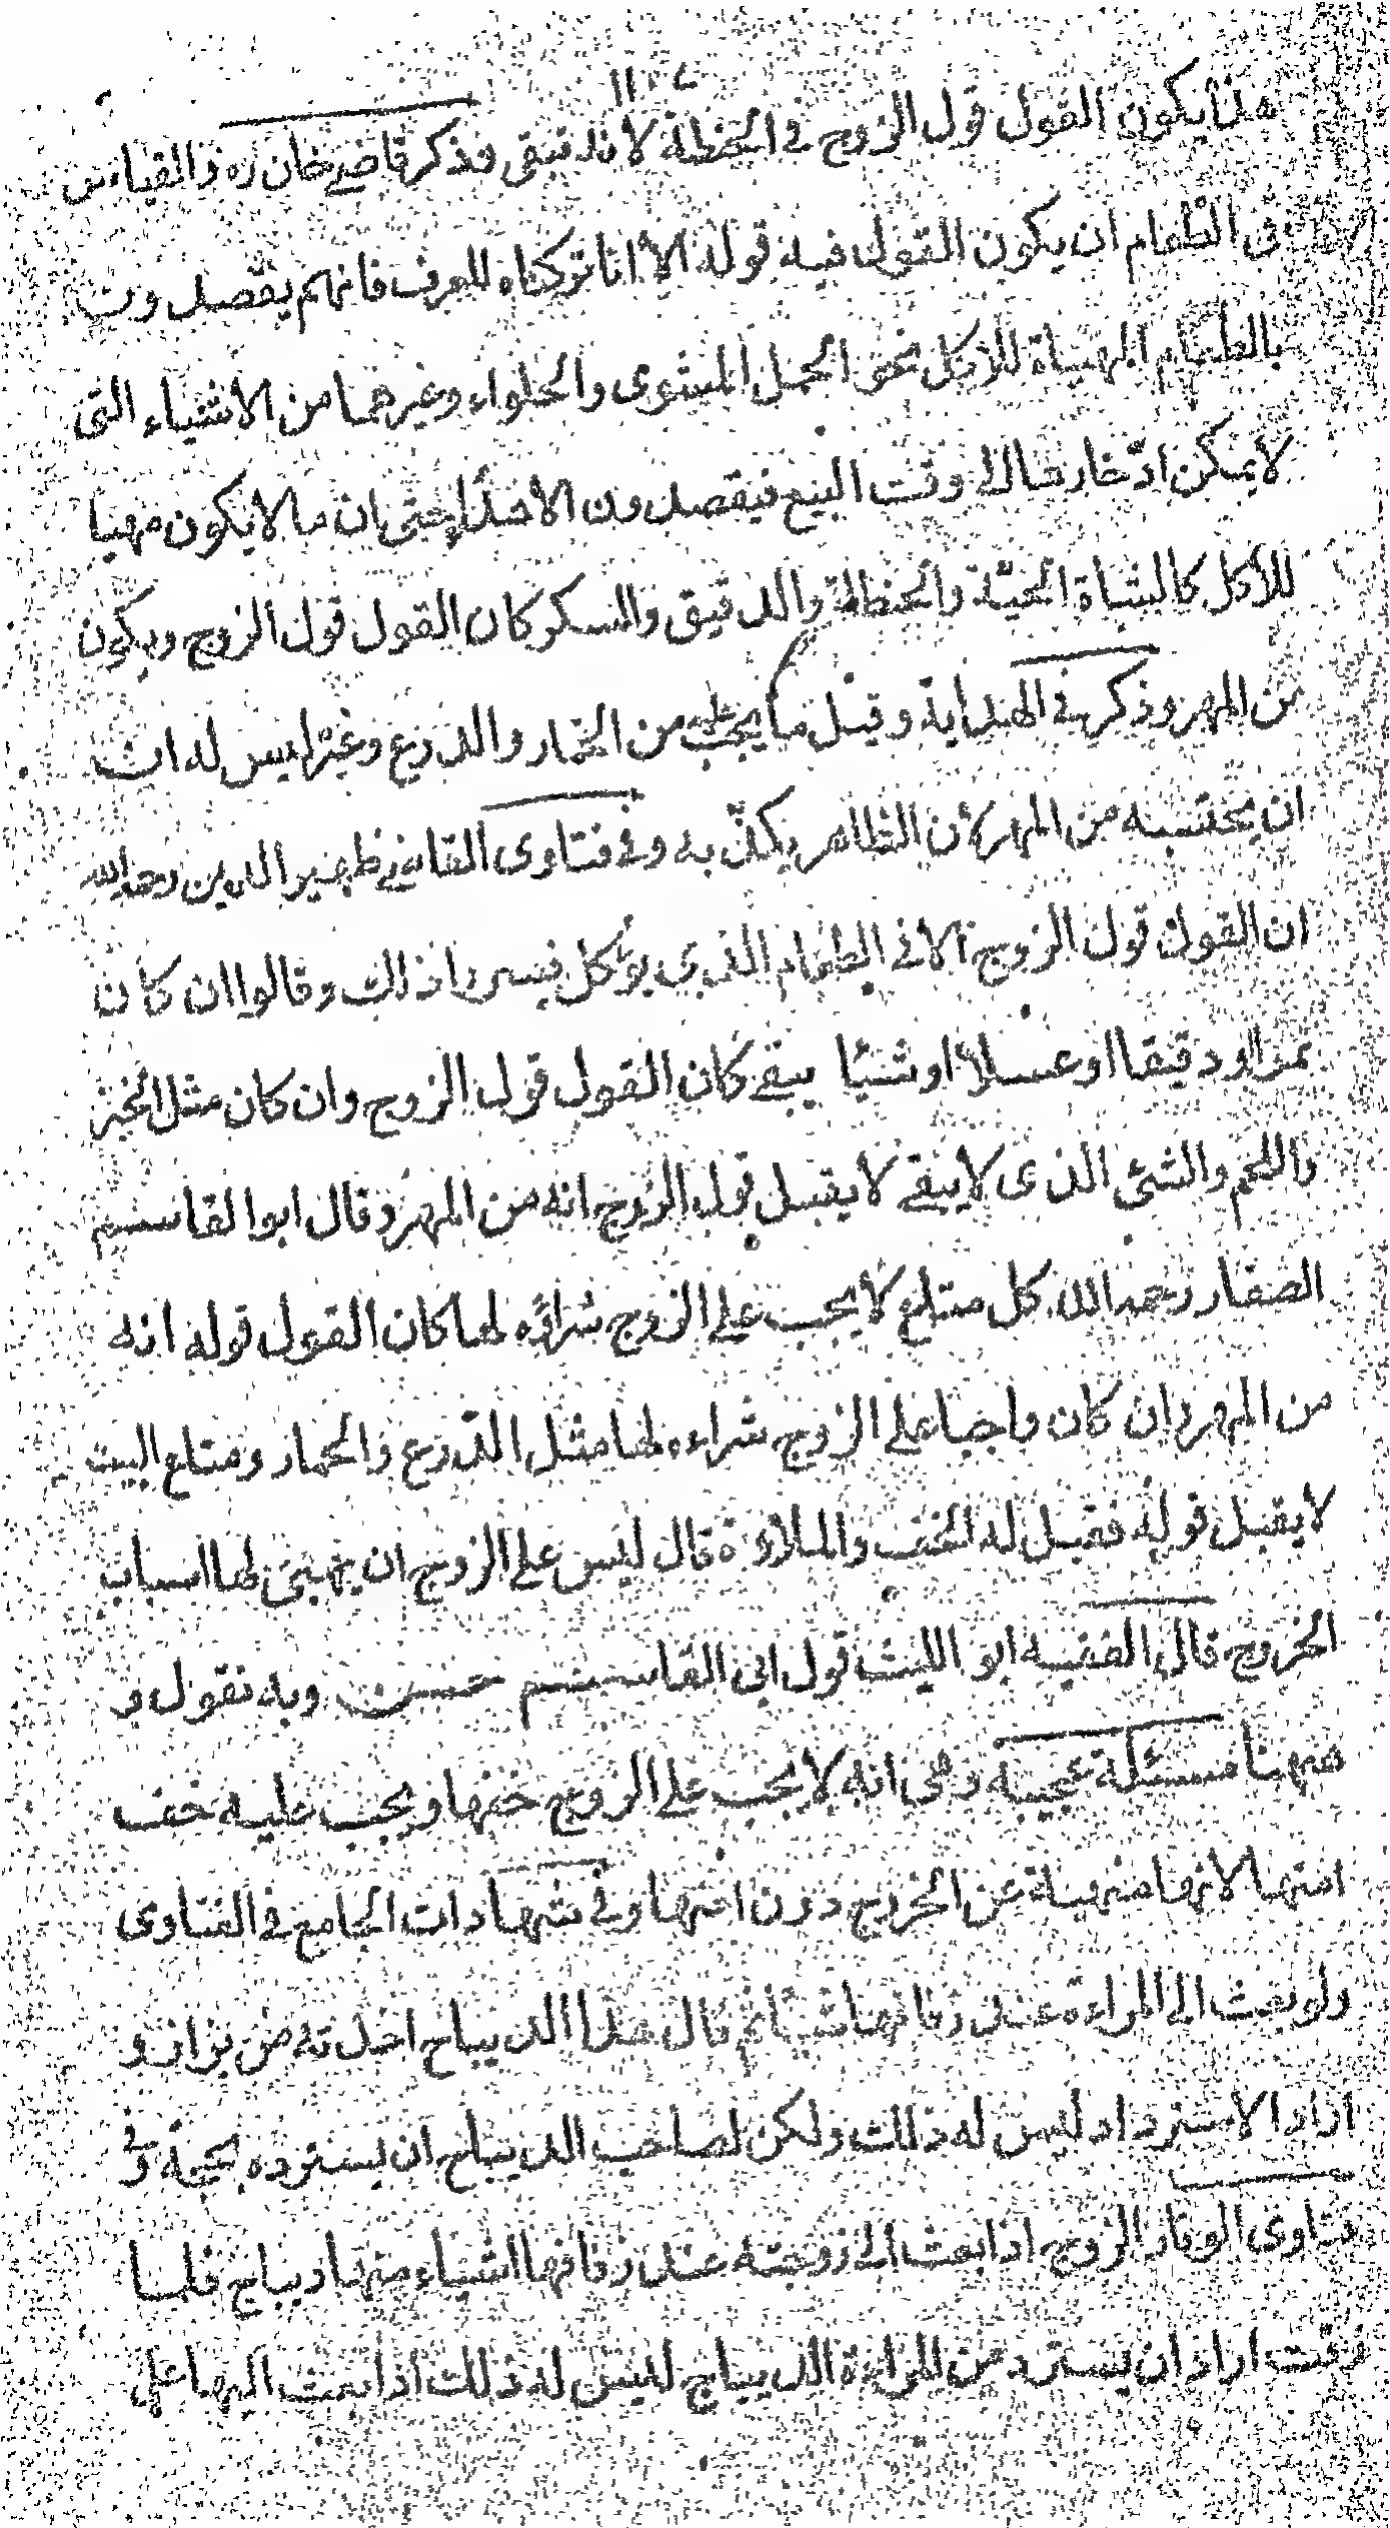 هذا يكون القول قول الزوج فى الحنطة لانه تبقى وذكر قاضى خان ره والقياس
فى الطعام ان يكون القول فيه قوله الا انا تركناه للعرف فانهم يقصدون
بالطعام المهيأة للاكل نحو الحمل المشوى والحلواء وغيرهما من الاشياء التى
لا يمكن ادّخارها الى وقت البيع فيقصدون الاخذ حتى ان ما لا يكون مهيا
للأكل كالشاة الحيّة والحنطة والدقيق والسكر كان القول قول الزوج ويكون
من المهر وذكر فى الهداية وقيل ما يجب عليه من الخمار والدرع وغيرها ليس له ان
ان يحتسبه من المهر لأن الظاهر يكذّبه وفى فتاوى القاضى ظهير الدين رحمه الله
ان القول قول الزوج الا فى الطعام الذى يؤكل فسروا ذلك وقالوا ان كان
تمرا او دقيقا او عسلا او شيئا يبقى كان القول قول الزوج وان كان مثل الخبز
واللحم والشئ الذى لا يبقى لا يقبل قول الزوج انه من المهر وقال ابو القاسم
الصفار رحمه الله كل متاع لا يجب على الزوج شراؤه لها كان القول قوله انه
من المهر وان كان واجبا على الزوج شراءه لها مثل الدّرع والخمار ومتاع البيت
لا يقبل قوله فقيل له الخف والملاءة قال ليس على الزوج ان يهيئ لها اسباب
الخروج قال الفقيه ابو الليث قول ابى القاسم حسن وبه نقول و
ههنا مسئلة عجيبة وهى انه لا يجب على الزوج خفها ويجب عليه خف
امتها لانها منهية عن الخروج دون امتها وفى شهادات الجامع فى الفتاوى
ولو بعث الى المراءة عند زفافها شيأ ثم قال هذا الديباج اخذته من بزاز و
اراد الاسترداد ليس له ذلك ولكن لصاحب الديباج ان يسترده بحجة وفى
فتاوى الوفاد الزوج اذا بعث الى زوجته عند زفافها اشياء منها ديباج فلما
زفت اراد ان يسترد من المراءة الديباج ليس له ذلك اذا بعث اليها على